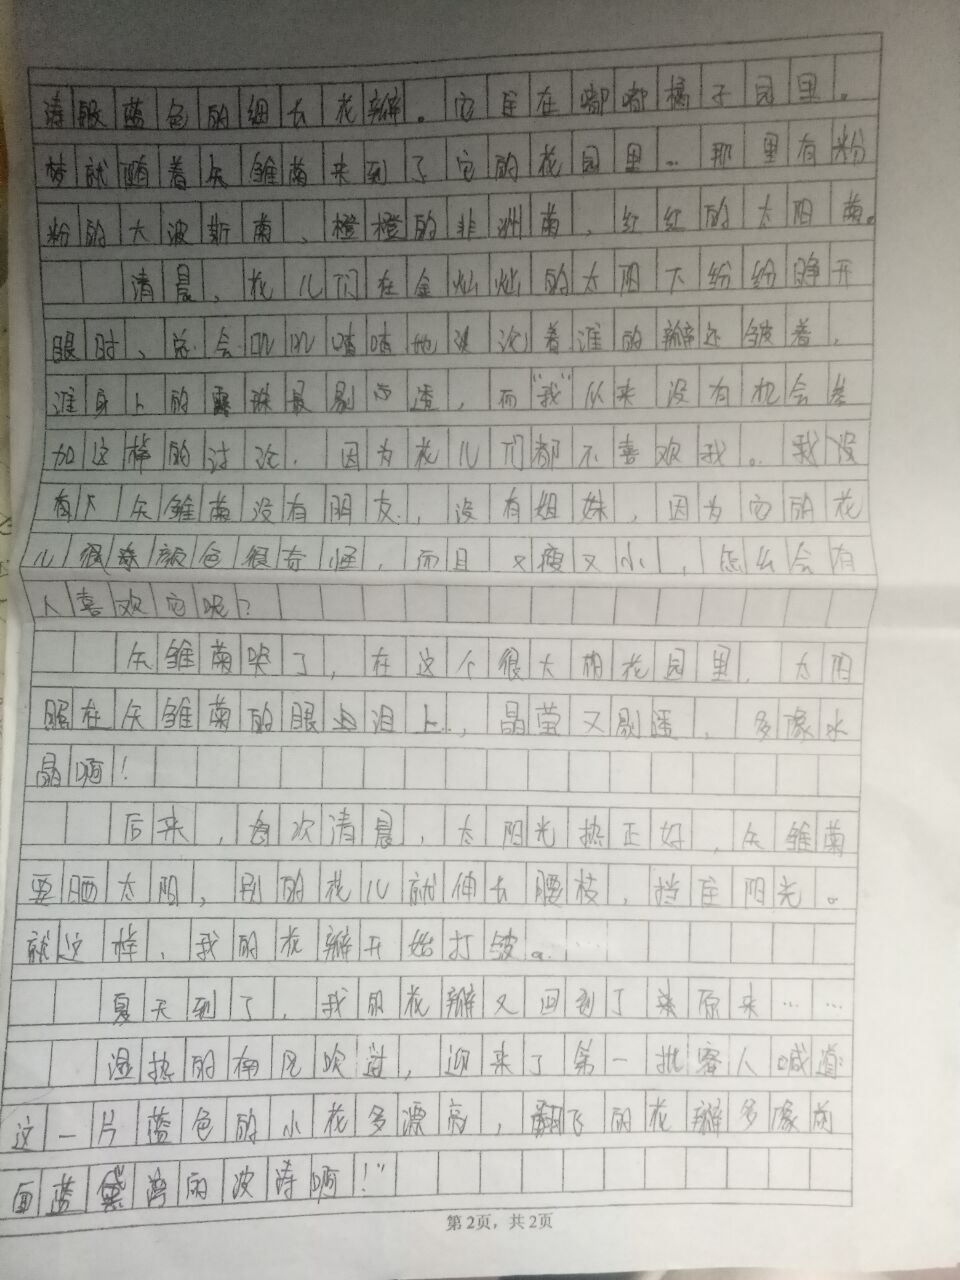 涛般蓝色的细长花瓣。它住在嘟嘟橘子园里。
梦就随着矢雏菊来到了它的花园里。那里有粉
粉的大波斯菊、橙橙的非洲菊、红红的太阳菊。
清晨，花儿们在金灿灿的太阳下纷纷睁开
眼时，总会叽叽喳喳地谈论着谁的瓣还皱着，
谁身上的露珠最剔透，而"我"从来没有机会参
加这样的讨论，因为花儿们都不喜欢我。我没
有矢雏菊没有朋友，没有姐妹，因为它的花
儿很颜色很奇怪，而且又瘦又小，怎么会有
人喜欢它呢？
矢雏菊哭了，在这个很大的花园里，太阳
照在矢雏菊的眼泪上，晶莹又剔透，多像水
晶啊！
后来，每次清晨，太阳光热正好，矢雏菊
要晒太阳，别的花儿就伸长腰枝，挡住阳光。
就这样，我的花瓣开始打皱。
夏天到了，我的花瓣又回到了原来……
湿热的南风吹过，迎来了第一批客人喊道：
这一片蓝色的小花多漂亮，翻飞的花瓣多像前
面蓝黛湾的波涛啊！"
第2页，共2页